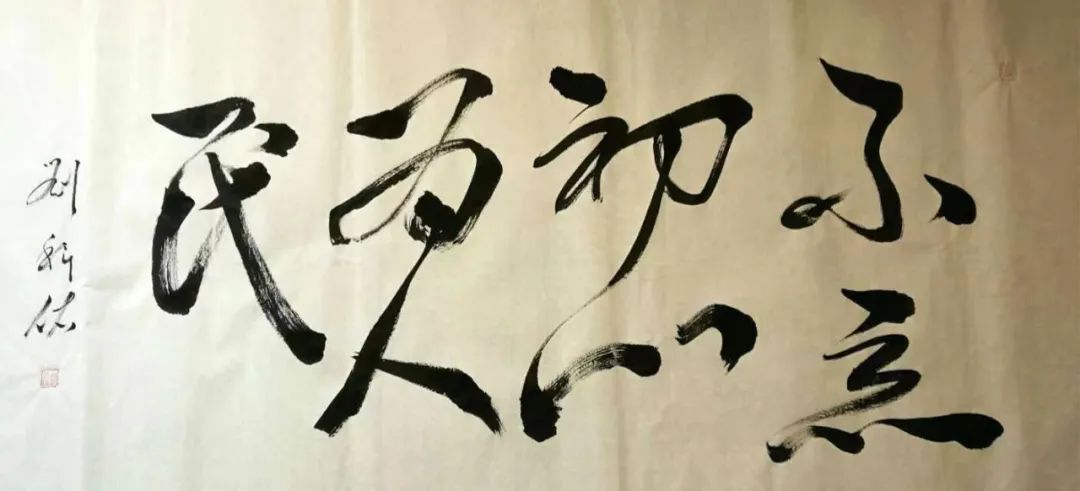 不忘
初心
为人
民
刘科佑